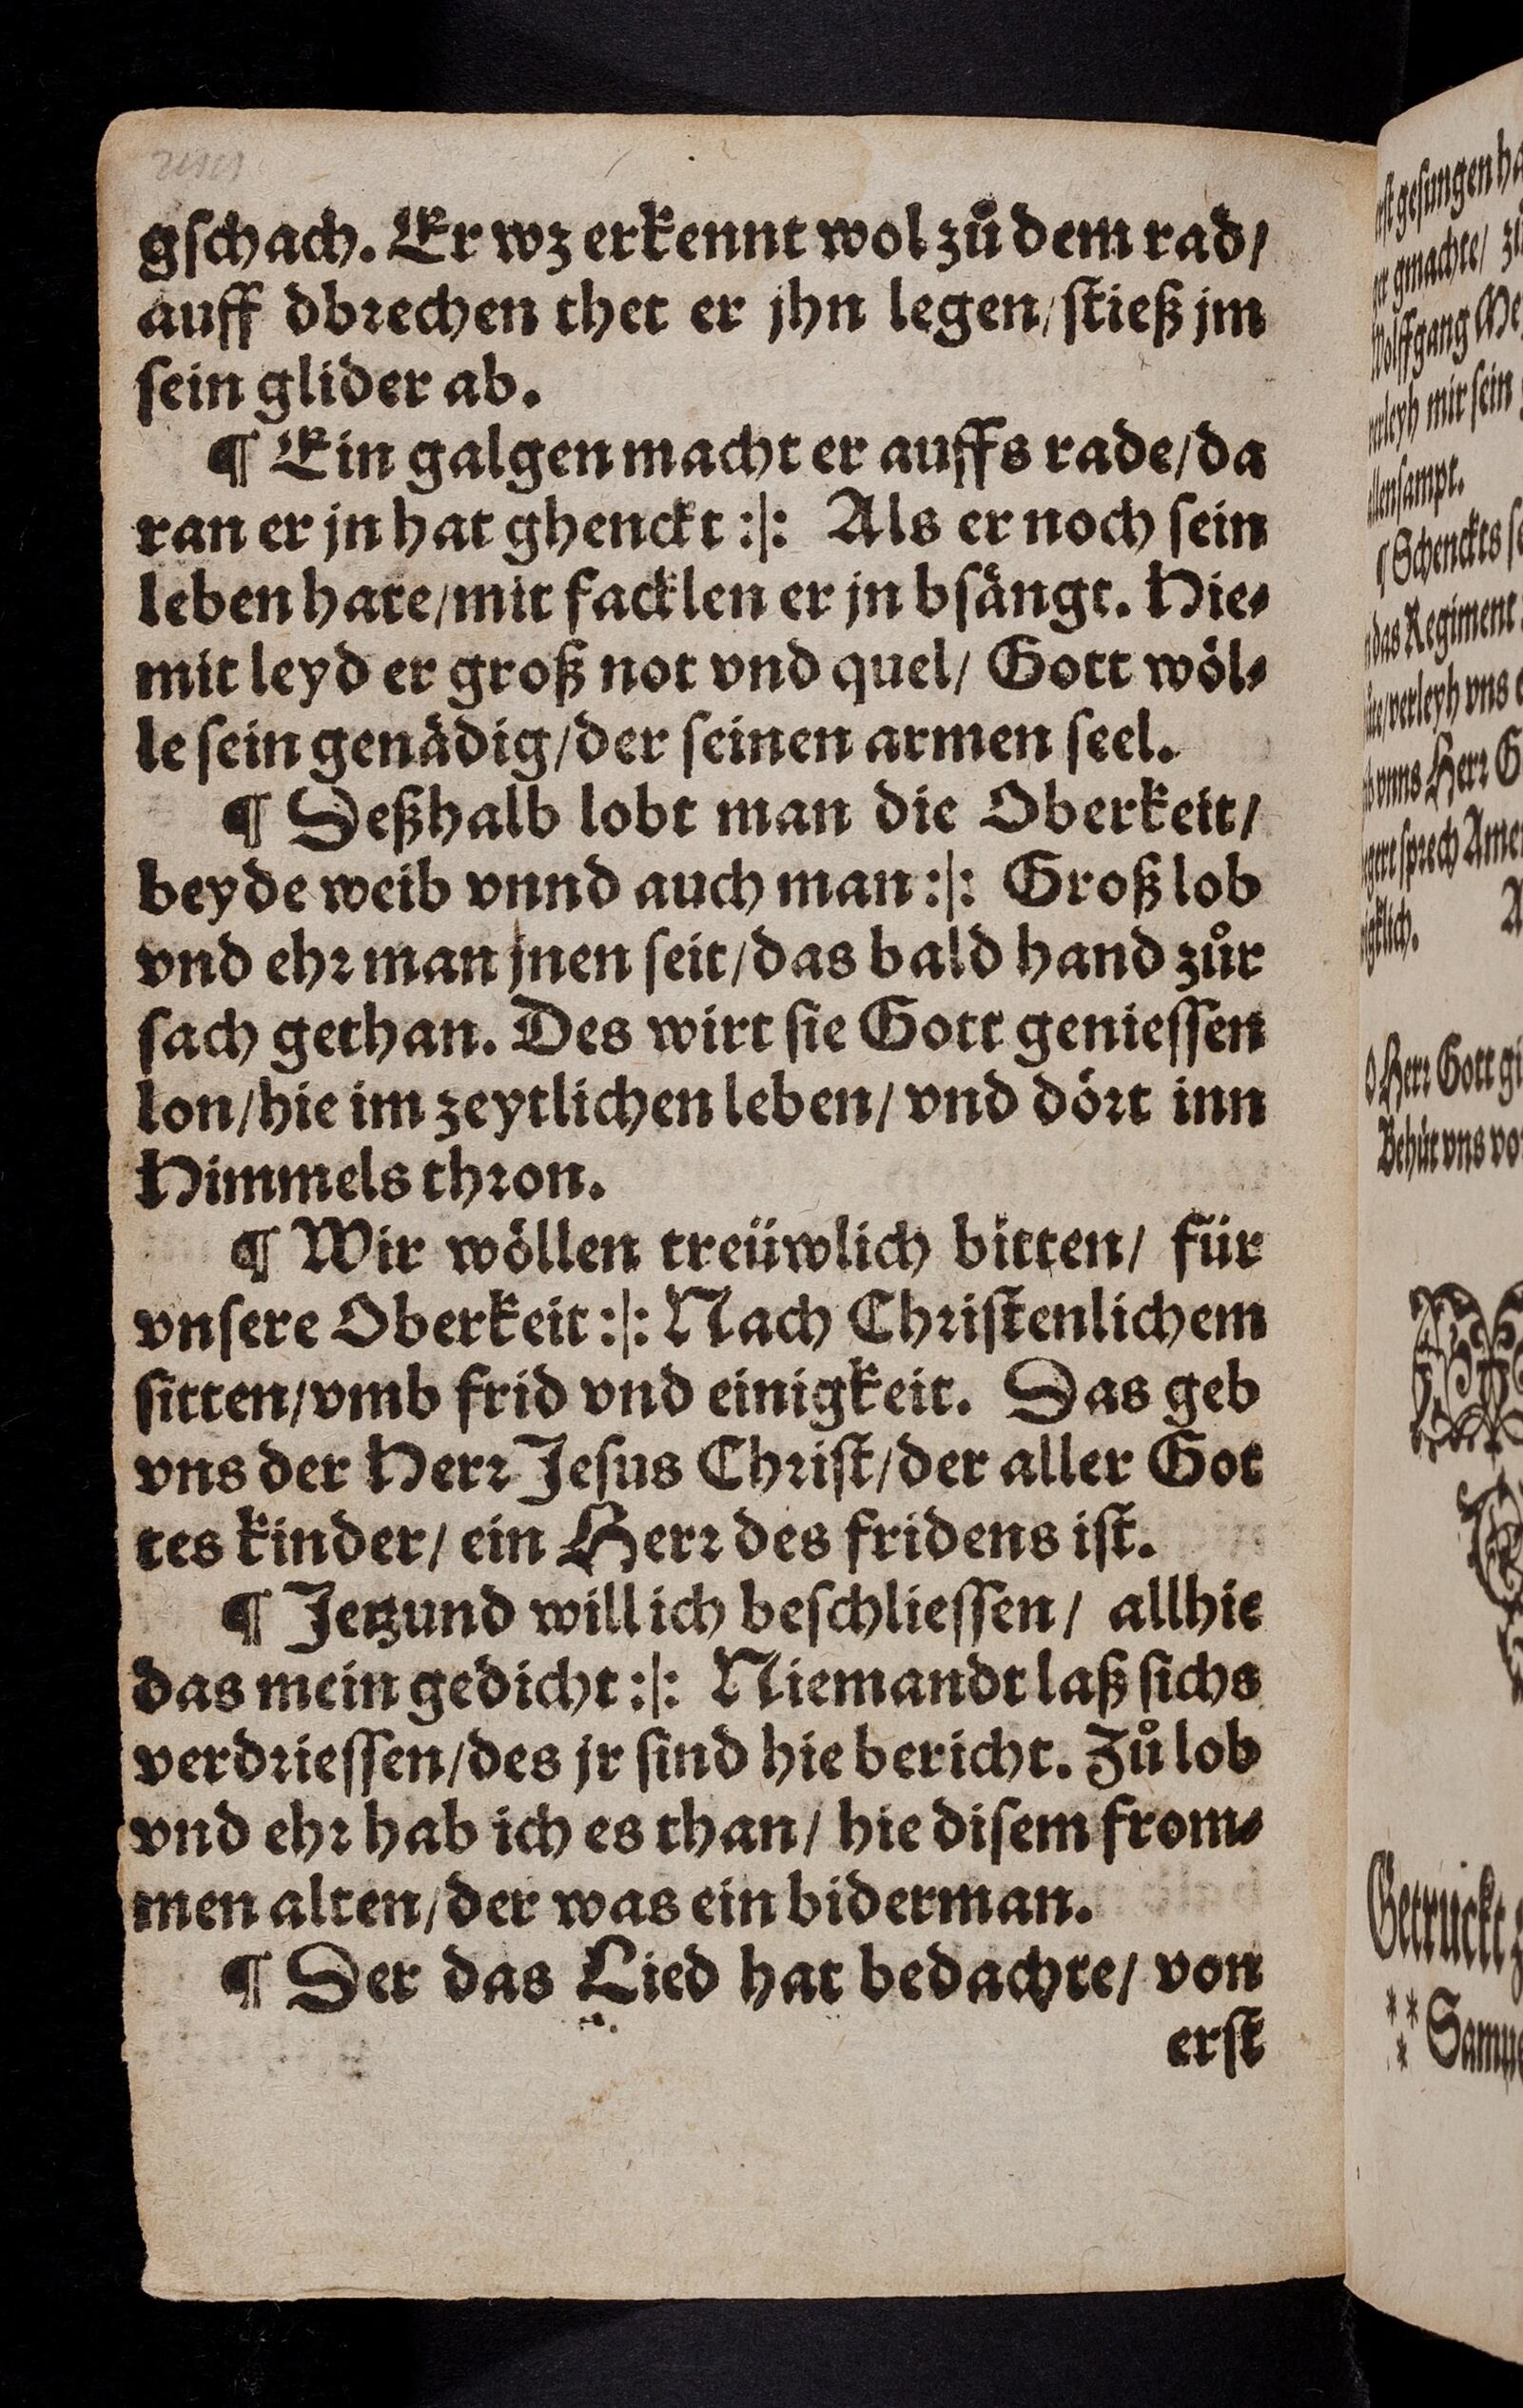 gschach. Er wz erkennt wol zuͦ dem rad/
auff dbrechen thet er jhn legen/stieß jm
sein glider ab.
¶ Ein galgen macht er auffs rade/da
ran er jn hat ghenckt :|: Als er noch sein
leben hate/mit facklen er jn bsängt. Hie⸗
mit leyd er groß not vnd quel/ Gott wöl⸗
le sein genädig/der seinen armen seel.
¶ Deßhalb lobt man die Oberkeit/
beyde weib vnnd auch man :|: Groß lob
vnd ehr man jnen seit/das bald hand zuͦr
sach gethan. Des wirt sie Gott geniessen
lon/hie im zeytlichen leben/ vnd dört inn
Himmels thron.
¶ Wir wöllen treüwlich bitten/ für
vnsere Oberkeit :|: Nach Christenlichem
sitten/vmb frid vnd einigkeit. Das geb
vns der Herr Jesus Christ/der aller Got
tes kinder/ ein Herr des fridens ist.
¶ Jetzund will ich beschliessen/ allhie
das mein gedicht :|: Niemandt laß sichs
verdriessen/des jr sind hie bericht. Zuͦ lob
vnd ehr hab ich es than/ hie disem from⸗
men alten/der was ein biderman.
¶ Der das Lied hat bedachte/ von
erst
gesungen
gmachte/
Wolffgang
mit sein
¶ Schenckts
das Regiment
vns
vnns Herr
sprech
O Herr Gott
Behüt vns
Getruckt